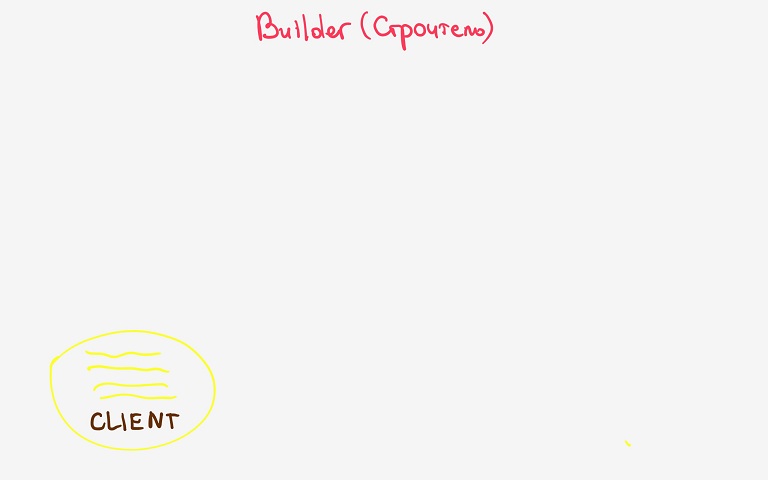 Builder (Строитель)
CLIENT